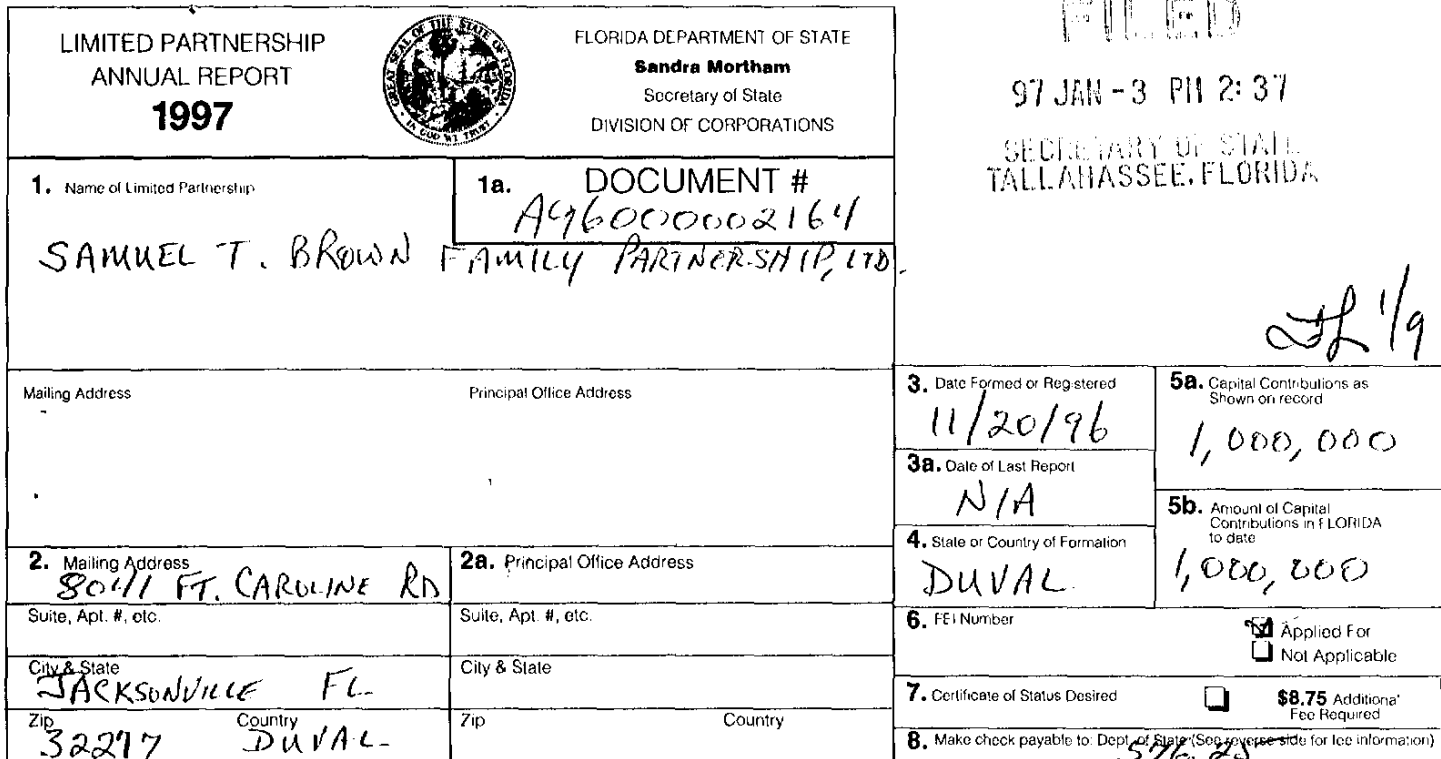 LIMITED PARTNERSHIP
ANNUAL REPORT
1997
GREAT SEAL OF THE STATE OF FLORIDA
IN GOD WE TRUST
FLORIDA DEPARTMENT OF STATE
Sandra Mortham
Secretary of State
DIVISION OF CORPORATIONS
FILED
97 JAN -3 PM 2:37
SECRETARY OF STATE
TALLAHASSEE, FLORIDA
1. Name of Limited Partnership
1a. DOCUMENT #
A96000002164
SAMUEL T. BROWN FAMILY PARTNERSHIP, LTD.
1/9
Mailing Address
Principal Office Address
3. Date Formed or Registered
11/20/96
5a. Capital Contributions as
Shown on record
1,000,000
3a. Date of Last Report
N/A
5b. Amount of Capital
Contributions in FLORIDA
to date
1,000,000
4. State or Country of Formation
DUVAL
2. Mailing Address
FT. CAROLINE RD
2a. Principal Office Address
Suite, Apt. #, etc.
Suite, Apt. #, etc.
6. FEI Number
Applied For
Not Applicable
City & State
JACKSONVILLE FL
City & State
7. Certificate of Status Desired
$8.75 Additional
Fee Required
Zip Country
32277 DUVAL
Zip Country
8. Make check payable to: Dept. of State (See reverse side for fee information)
576.25